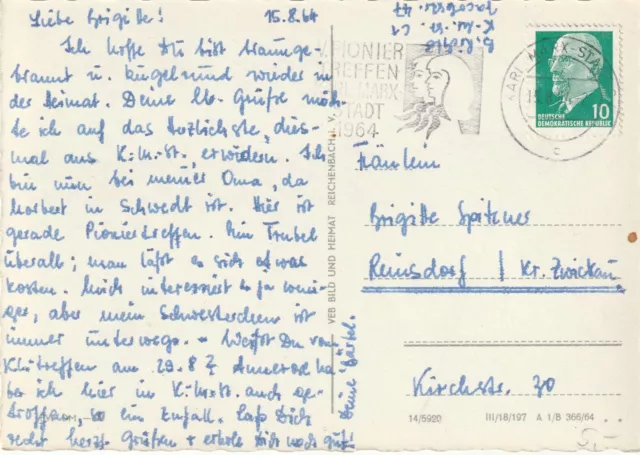 Liebe Brigitte! 15.8.64
Ich hoffe Du bist braunge-
brannt u. kugelrund wieder in
der Heimat. Deine lb. Grüße möch-
te ich auf das Herzlichste, dies-
mal aus K.-M.-St. erwidern. Ich
bin nun bei meiner Oma, da
Norbert in Schwedt ist. Hier ist
gerade Pioniertreffen. Ein Trubel
überall; man läßt es sich etwas
kosten. Mich interessiert es ja weni-
ger, aber mein Schwesterchen ist
immer unterwegs. – Weißt Du vom
Kl.treffen am 29.8? Annerose ha-
be ich hier in K.-M.-St. auch ge-
troffen, so ein Zufall. Laß Dich
recht herzl. Grüßen + erhole Dich noch gut!
Deine "Bärbel"
K.-M.-St. C1
47
V. PIONIER
TREFFEN
KARL-MARX
STADT
1964
KARL-MARX-STADT
C
10
DEUTSCHE
DEMOKRATISCHE REPUBLIK
VEB BILD UND HEIMAT REICHENBACH I. V.
Fräulein
Brigitte Spitzner
Reinsdorf / Kr. Zwickau
Kirchstr. 30
14/5920 III/18/197 A 1/B 366/64